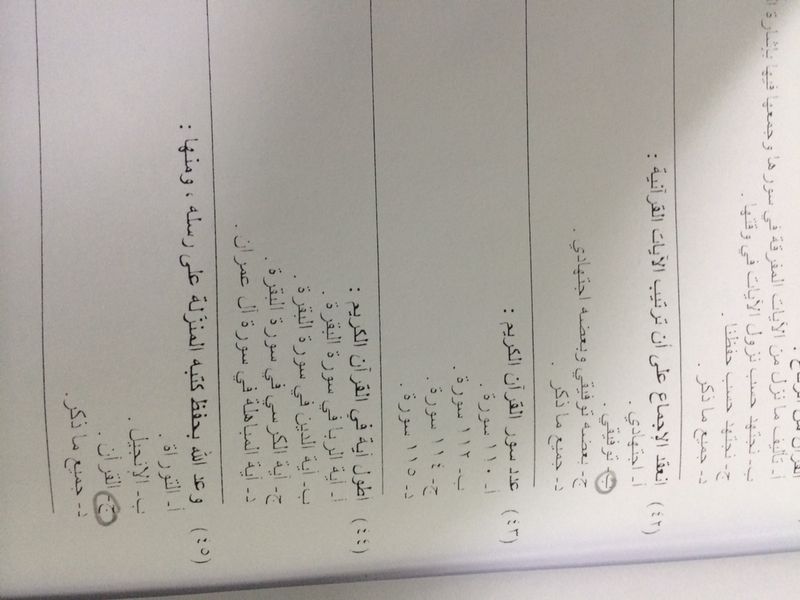 القرآن من
أ- تأليف ما نزل من الآيات المفرقة في سورها وجمعها فيها بإشارة
ب- نجتهد حسب نزول الآيات في وقتها.
ج- نجتهد حسب حفظنا.
د- جميع ما ذكر.
(٤٢) انعقد الإجماع على أن ترتيب الآيات القرآنية :
أ- اجتهادي.
ب- توقيفي.
ج- بعضه توقيفي وبعضه اجتهادي .
د- جميع ما ذكر.
(٤٣) عدد سور القرآن الكريم :
أ- ١١٠ سورة .
ب- ١١٢ سورة .
ج- ١١٤ سورة .
د- ١١٥ سورة .
(٤٤) اطول آية في القرآن الكريم :
أ- آية الربا في سورة البقرة .
ب- آية الدين في سورة البقرة .
ج- آية الكرسي في سورة البقرة .
د- آية المباهلة في سورة آل عمران .
(٤٥) وعد الله بحفظ كتبه المنزلة على رسله ، ومنها :
أ- التوراة .
ب- الإنجيل .
ج- القرآن .
د- جميع ما ذكر.